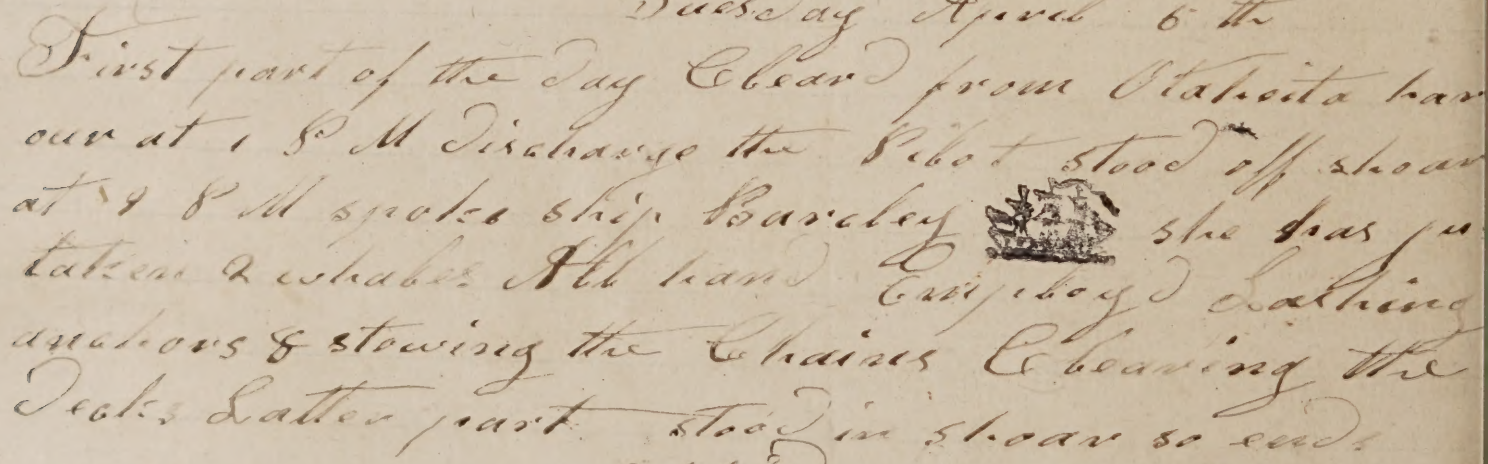 Tuesday April 6 th
First part of the Day Cleard from Otaheita har
our at 1 P M discharge the Pilot stood off shoar
at 9 P M spoke ship Barcley she has ju
taken 2 whales All hand Employd Lashing
anchors & stowing the Chains Clearing the
Decks Latter part stood in shoar so ends